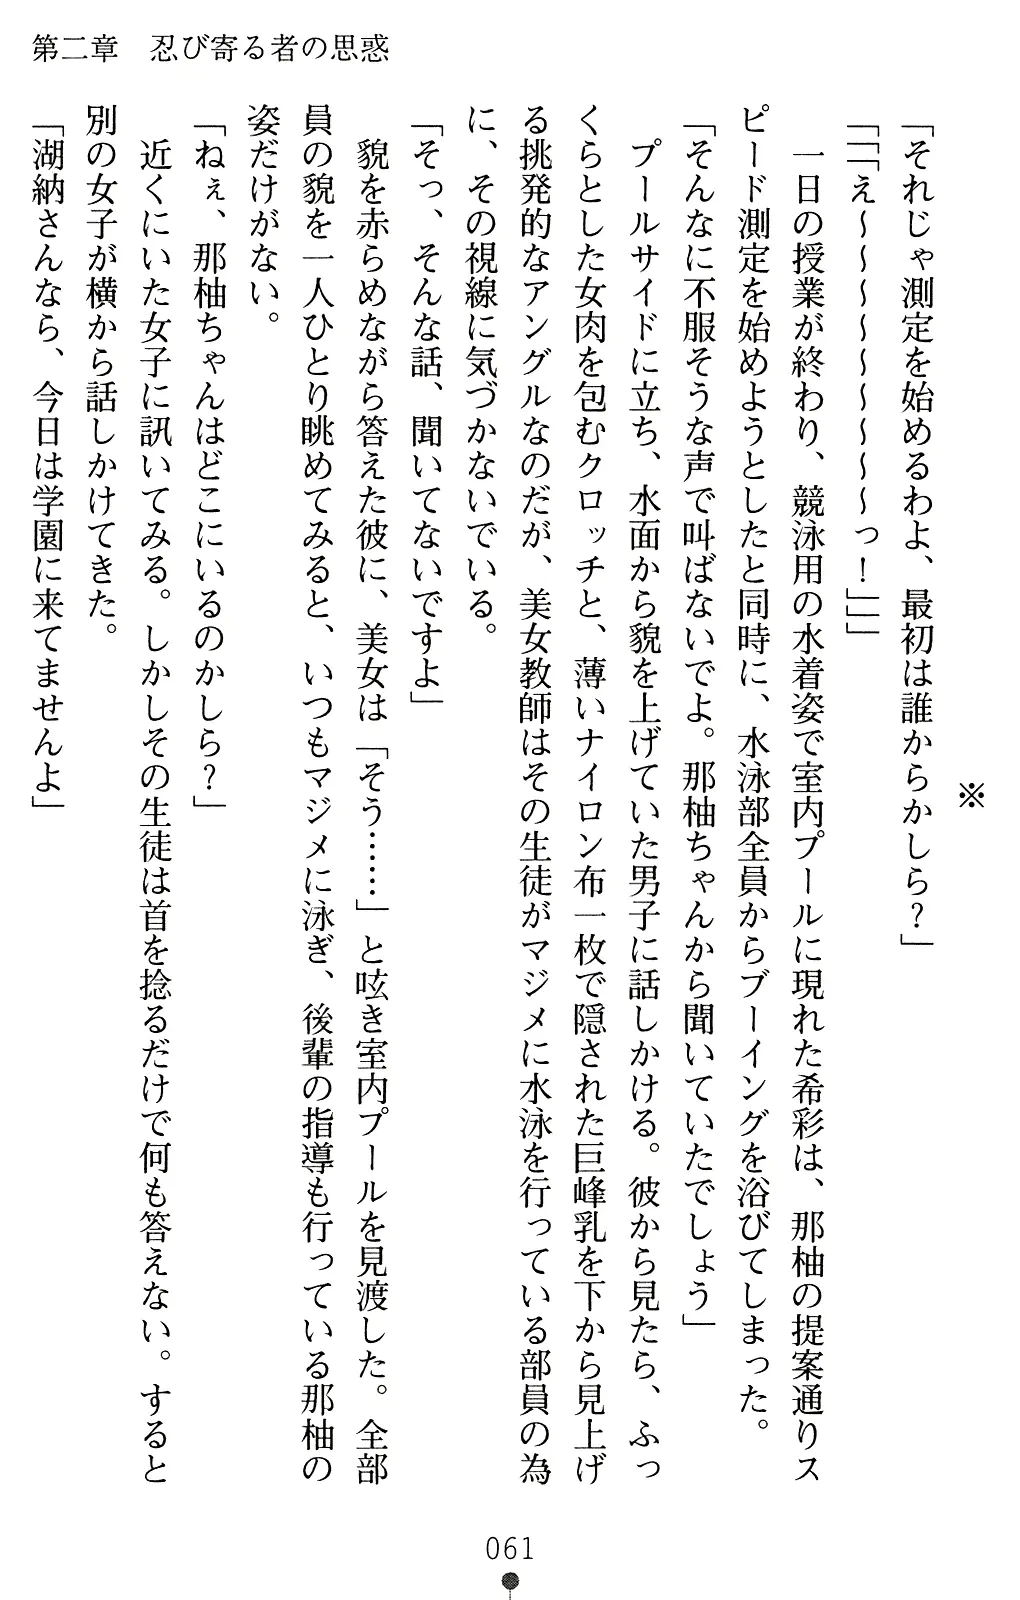 第二章　忍び寄る者の思惑
※
「それじゃ測定を始めるわよ、最初は誰からかしら？」
「「「え～～～～～～～っ！」」」
　一日の授業が終わり、競泳用の水着姿で室内プールに現れた希彩は、那柚の提案通りス
ピード測定を始めようとしたと同時に、水泳部全員からブーイングを浴びてしまった。
「そんなに不服そうな声で叫ばないでよ。那柚ちゃんから聞いていたでしょう」
　プールサイドに立ち、水面から貌を上げていた男子に話しかける。彼から見たら、ふっ
くらとした女肉を包むクロッチと、薄いナイロン布一枚で隠された巨峰乳を下から見上げ
る挑発的なアングルなのだが、美女教師はその生徒がマジメに水泳を行っている部員の為
に、その視線に気づかないでいる。
「そっ、そんな話、聞いてないですよ」
　貌を赤らめながら答えた彼に、美女は「そう……」と呟き室内プールを見渡した。全部
員の貌を一人ひとり眺めてみると、いつもマジメに泳ぎ、後輩の指導も行っている那柚の
姿だけがない。
「ねぇ、那柚ちゃんはどこにいるのかしら？」
　近くにいた女子に訊いてみる。しかしその生徒は首を捻るだけで何も答えない。すると
別の女子が横から話しかけてきた。
「湖納さんなら、今日は学園に来てませんよ」
061